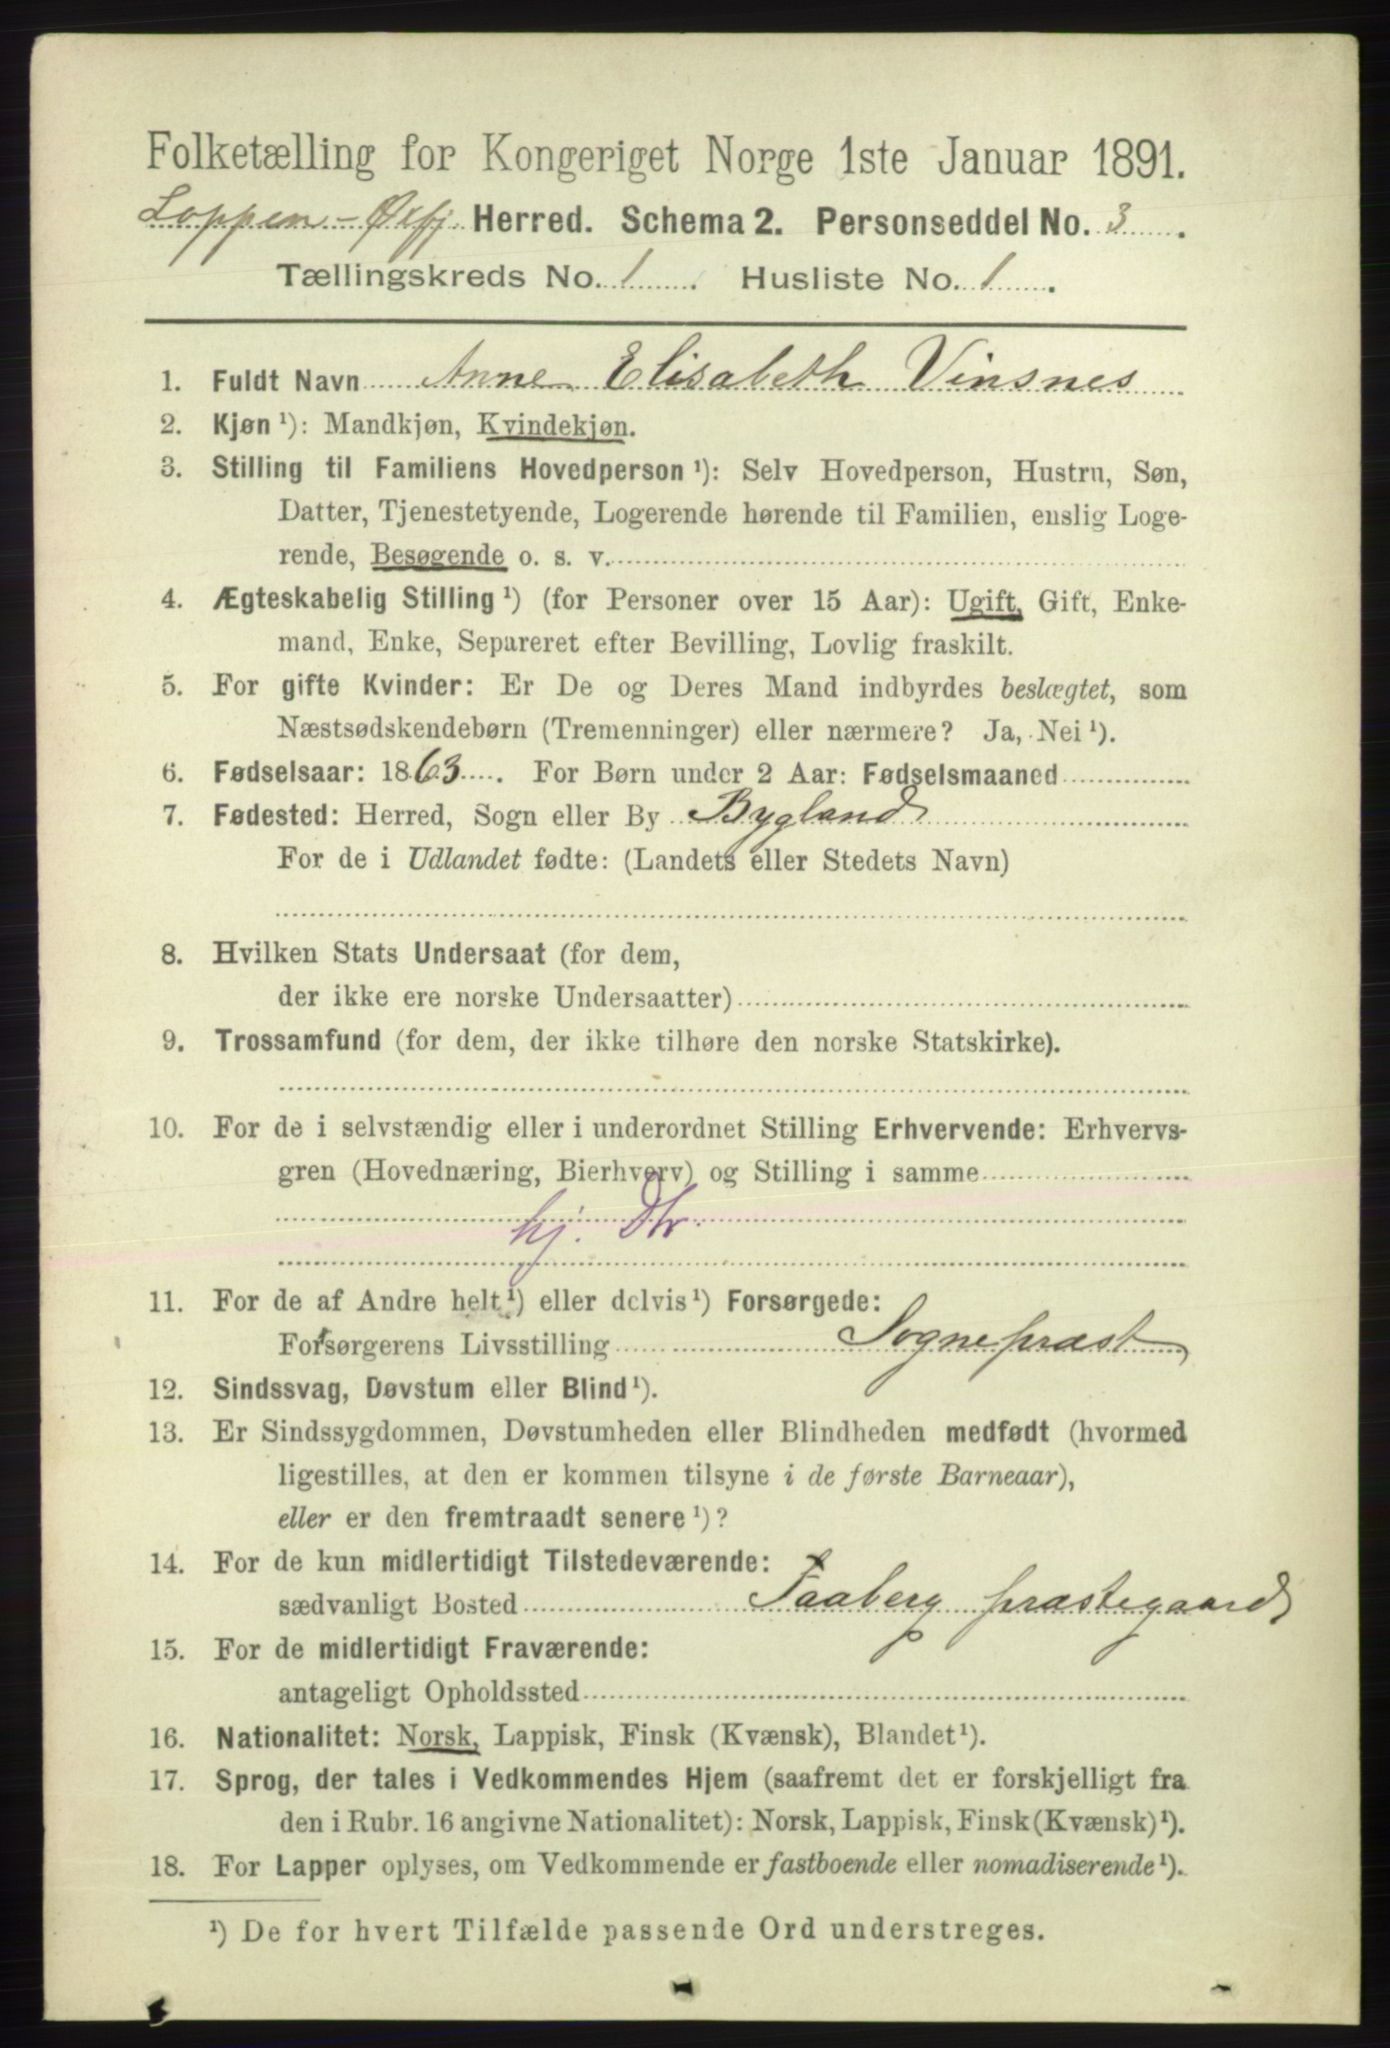 Folketælling for Kongeriget Norge 1ste Januar 1891.
Loppen - Øxfj. Herred. Schema 2. Personseddel No. 3.
Tællingskreds No. 1. Husliste No. 1.
1. Fuldt Navn Anne Elisabeth Vinsnes
2. Kjøn ¹): Mandkjøn, Kvindekjøn.
3. Stilling til Familiens Hovedperson ¹): Selv Hovedperson, Hustru, Søn,
Datter, Tjenestetyende, Logerende hørende til Familien, enslig Loge-
rende, Besøgende o. s. v.
4. Ægteskabelig Stilling ¹) (for Personer over 15 Aar): Ugift, Gift, Enke-
mand, Enke, Separeret efter Bevilling, Lovlig fraskilt.
5. For gifte Kvinder: Er De og Deres Mand indbyrdes beslægtet, som
Næstsødskendebørn (Tremenninger) eller nærmere? Ja, Nei ¹).
6. Fødselsaar: 1863. For Børn under 2 Aar: Fødselsmaaned
7. Fødested: Herred, Sogn eller By Bygland
For de i Udlandet fødte: (Landets eller Stedets Navn)
8. Hvilken Stats Undersaat (for dem,
der ikke ere norske Undersaatter)
9. Trossamfund (for dem, der ikke tilhøre den norske Statskirke).
10. For de i selvstændig eller i underordnet Stilling Erhvervende: Erhvervs-
gren (Hovednæring, Bierhverv) og Stilling i samme
hj. Dtr.
11. For de af Andre helt ¹) eller delvis ¹) Forsørgede:
Forsørgerens Livsstilling Sognepræst
12. Sindssvag, Døvstum eller Blind ¹).
13. Er Sindssygdommen, Døvstumheden eller Blindheden medfødt (hvormed
ligestilles, at den er kommen tilsyne i de første Barneaar),
eller er den fremtraadt senere ¹)?
14. For de kun midlertidigt Tilstedeværende:
sædvanligt Bosted Faaberg præstegaard
15. For de midlertidigt Fraværende:
antageligt Opholdssted
16. Nationalitet: Norsk, Lappisk, Finsk (Kvænsk), Blandet ¹).
17. Sprog, der tales i Vedkommendes Hjem (saafremt det er forskjelligt fra
den i Rubr. 16 angivne Nationalitet): Norsk, Lappisk, Finsk (Kvænsk) ¹).
18. For Lapper oplyses, om Vedkommende er fastboende eller nomadiserende ¹).
¹) De for hvert Tilfælde passende Ord understreges.